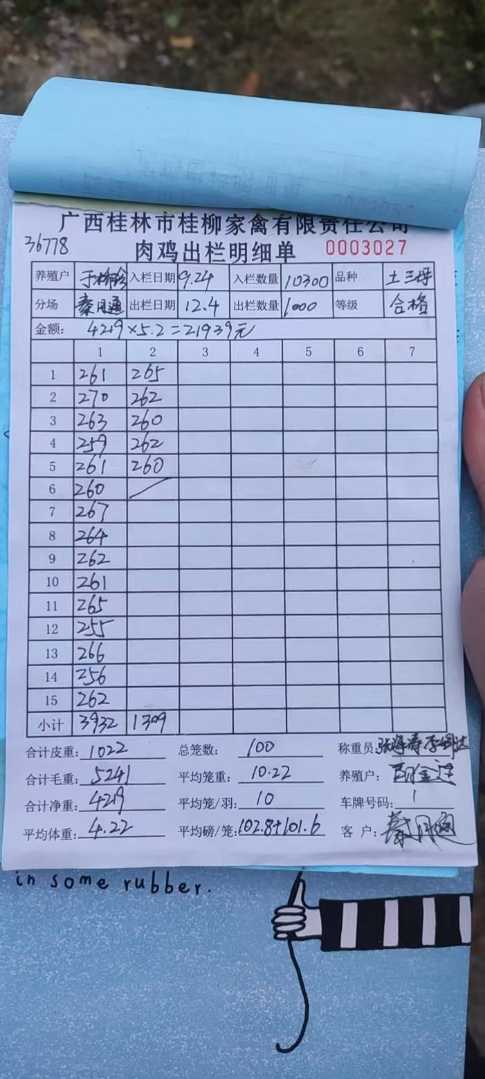 广西桂林市桂柳家禽有限责任公司
36778 肉鸡出栏明细单 0003027
养殖户 入栏日期 9.24 入栏数量 10300 品种 土三
分场 秦月通 出栏日期 12.4 出栏数量 1000 等级 合格
金额: 4219×5.2=21939元
1 2 3 4 5 6 7
1 261 265
2 270 262
3 263 260
4 259 262
5 261 260
6 260
7 267
8 264
9 262
10 261
11 265
12 255
13 266
14 256
15 262
小计 3932 1309
合计皮重: 1022 总笼数: 100 称重员:
合计毛重: 5241 平均笼重: 10.22 养殖户:
合计净重: 4219 平均笼/羽: 10 车牌号码:
平均体重: 4.22 平均磅/笼: 102.8+101.6 客户:
in some rubber.